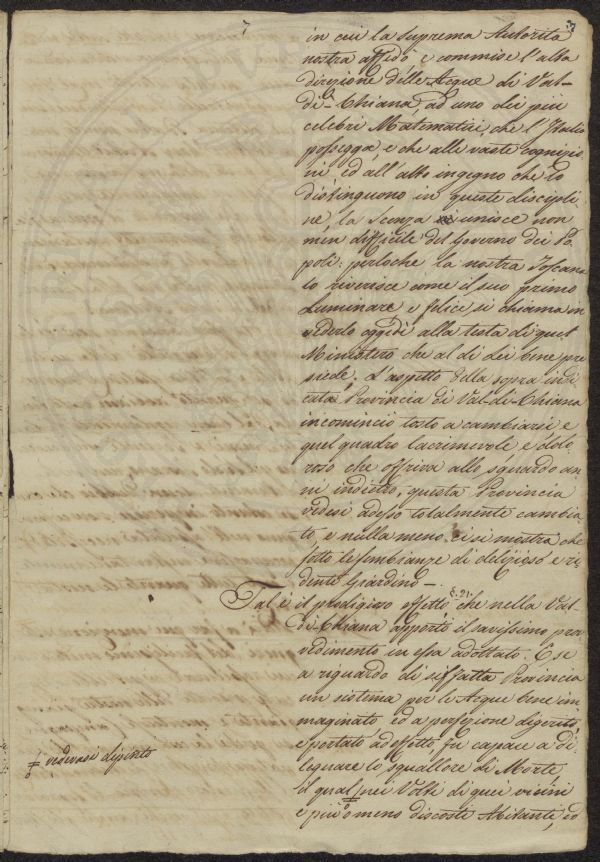 3
in cui la Suprema Autorità
nostra affidò e commise l'alta
direzione delle Acque di Val-
di-Chiana, ad uno dei più
celebri Matematici, che l'Italia
possegga, e che alle vaste cognizio
ni ed all'alto ingegno che lo
distinguono in queste discipli
ne, la scenza unisce non
men difficile del Governo dei Po
poli: perloche la nostra Toscana
lo riverisce come il suo primo
Luminare, e felice si chiama in
vederlo oggidì alla testa di quel
Ministero che al di Lei bene pre
siede. L'aspetto della sopra indi
cata Provincia di Val-di-Chiana
incominciò tosto a cambiarsi e
quel quadro lacrimevole e dolo
roso che offriva allo sguardo an
ni indietro, questa Provincia
vedesi adesso totalmente cambia
to, e nulla meno ci si mostra che
sotto le sembianze di delizioso e ri
dente Giardino —
§. 21.
Tal è il prodigioso effetto, che nella Val-
di-Chiana apportò il savissimo prov
vedimento in essa adottato. E se
a riguardo di siffatta Provincia
un sistema per le Acque bene im
maginato ed a perfezione digerito,
e portato ad effetto, fu capace a di
leguare lo squallore di Morte,
il qual nei Volti di quei vicini
e più o meno discosti Abitanti, ed
vedevasi dipinto